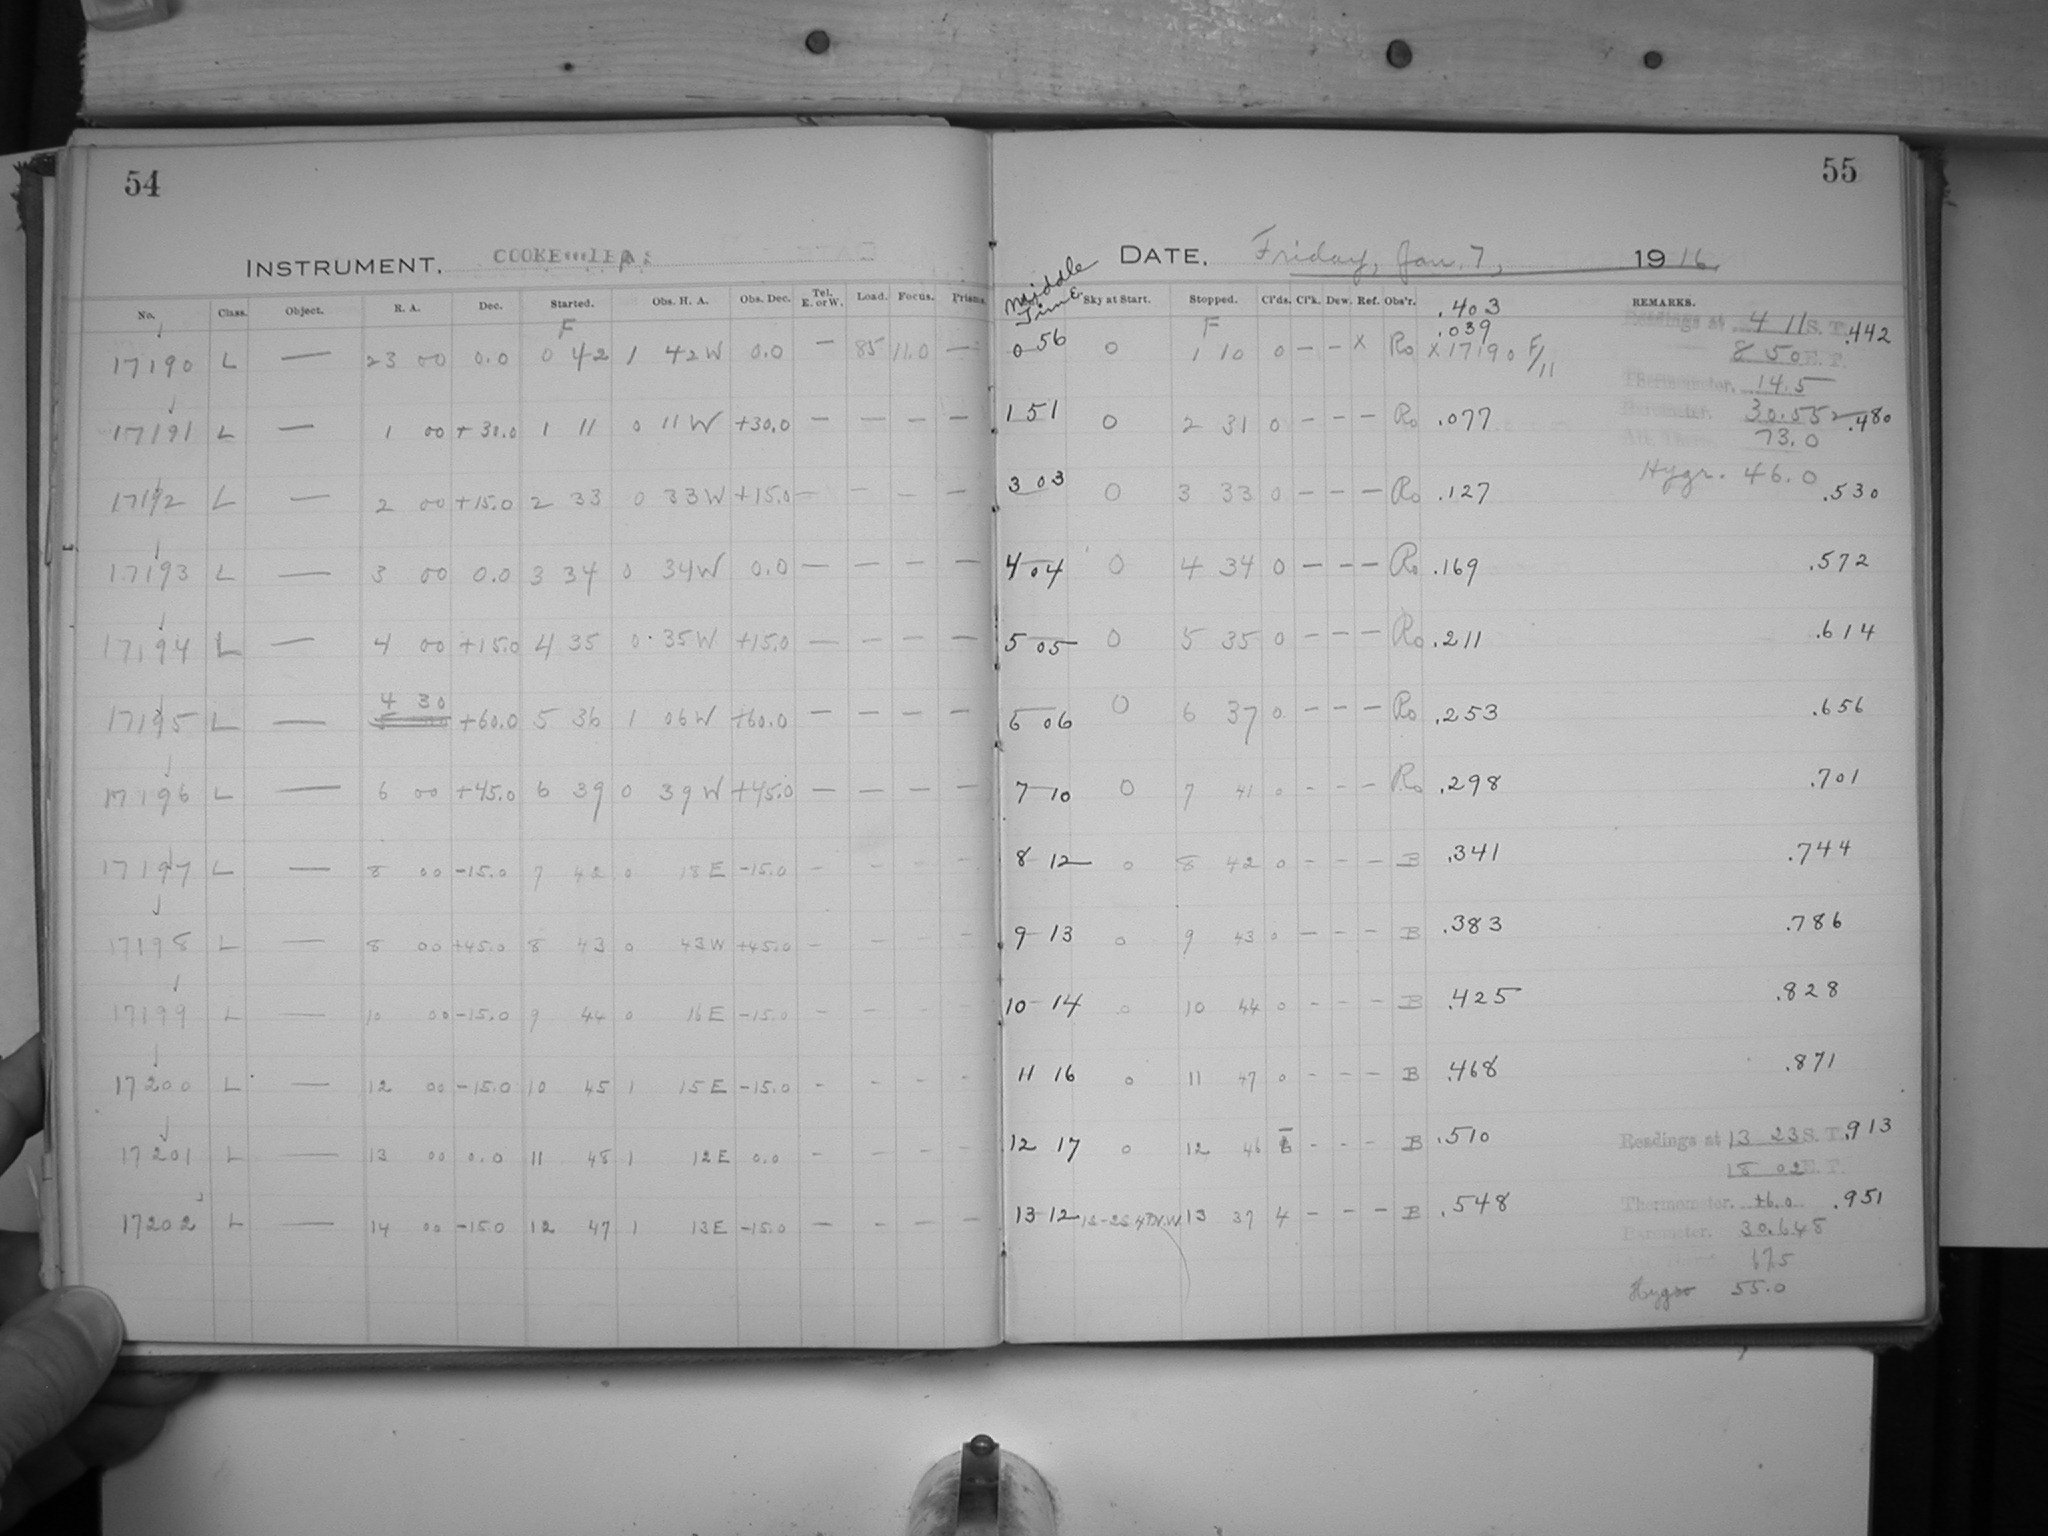 54
INSTRUMENT. COOKE
No. Class. Object. R. A. Dec. Started. Obs. H. A. Obs. Dec. Tel. E. or W. Load. Focus. Prisms.
F
17190 L — 23 00 0.0 0 42 1 42 W 0.0 — 85 11.0 —
17191 L — 1 00 +30.0 1 11 0 11 W +30.0 — — — —
17192 L — 2 00 +15.0 2 33 0 33 W +15.0 — — — —
17193 L — 3 00 0.0 3 34 0 34 W 0.0 — — — —
17194 L — 4 00 +15.0 4 35 0 35 W +15.0 — — — —
4 30
17195 L — +60.0 5 36 1 06 W +60.0 — — — —
17196 L — 6 00 +45.0 6 39 0 39 W +45.0 — — — —
17197 L — 8 00 -15.0 7 42 0 18 E -15.0 - - - -
17198 L — 8 00 +45.0 8 43 0 43 W +45.0 - - - -
17199 L — 10 00 -15.0 9 44 0 16 E -15.0 - - - -
17200 L — 12 00 -15.0 10 45 1 15 E -15.0 - - - -
17201 L — 13 00 0.0 11 48 1 12 E 0.0 - - - -
17202 L — 14 00 -15.0 12 47 1 13 E -15.0 - - - -
55
DATE. Friday, Jan. 7, 1916.
Middle Time Sky at Start. Stopped. Cl'ds. Cl'k. Dew. Ref. Obs'r. REMARKS.
.403
F .039
0 56 0 1 10 0 — — X Ro X17190 F/11 .442
1 51 0 2 31 0 — — — Ro .077 .480
3 03 0 3 33 0 — — — Ro .127 .530
4 04 0 4 34 0 — — — Ro .169 .572
5 05 0 5 35 0 — — — Ro .211 .614
6 06 0 6 37 0 — — — Ro .253 .656
7 10 0 7 41 0 - - - Ro .298 .701
8 12 0 8 42 0 - - - B .341 .744
9 13 0 9 43 0 - - - B .383 .786
10 14 0 10 44 0 - - - B .425 .828
11 16 0 11 47 0 - - - B .468 .871
12 17 0 12 46 - - - B .510 .913
13 12 13 37 4 - - - B .548 .951
Readings at 4 11 S. T.
8 50 E. T.
Thermometer. 14.5
Barometer. 30.552
Att. Ther. 73.0
Hygr. 46.0
Readings at 13 23 S. T.
18 02 E. T.
Thermometer.
Barometer. 30.648
67.5
Hygro 55.0